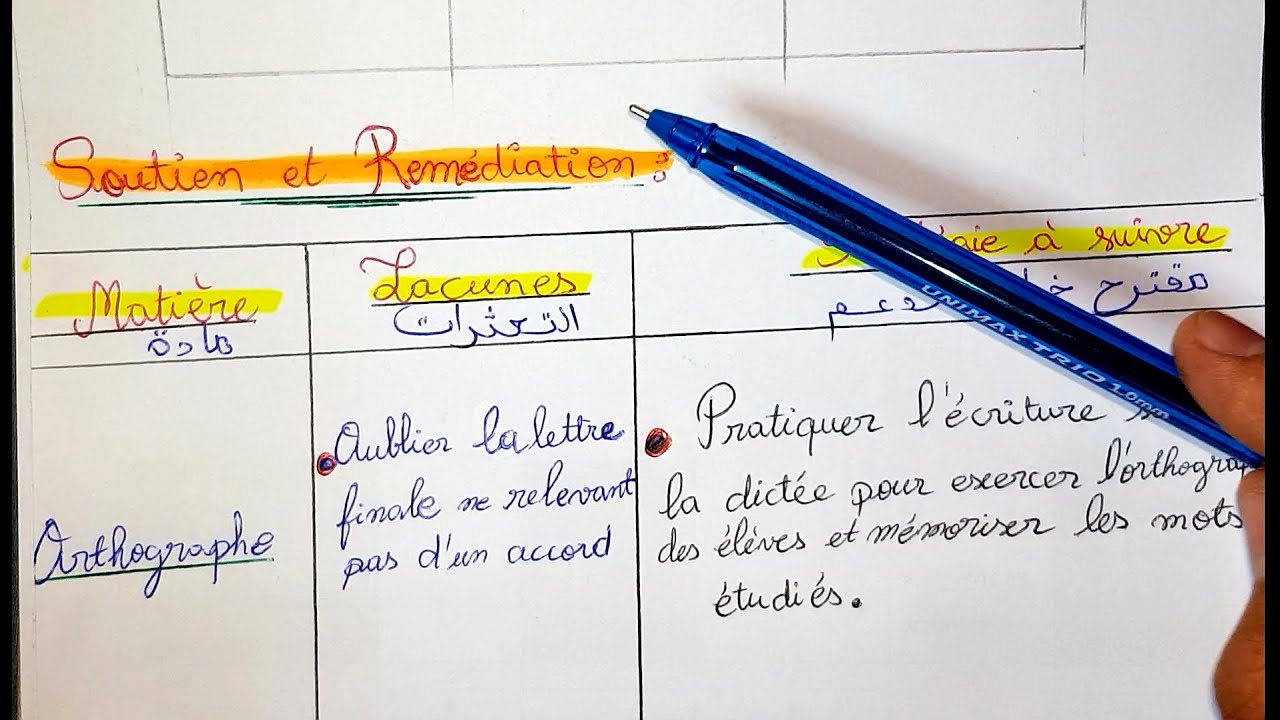 Soutien et Remédiation :
Matière
مادة
Lacunes
التعثرات
à suivre
مقترح
UNIMAX TRIO 1.0mm
Orthographe
Oublier la lettre
finale ne relevant
pas d'un accord
Pratiquer l'écriture
la dictée pour exercer l'orthograp
des élèves et mémoriser les mots
étudiés.